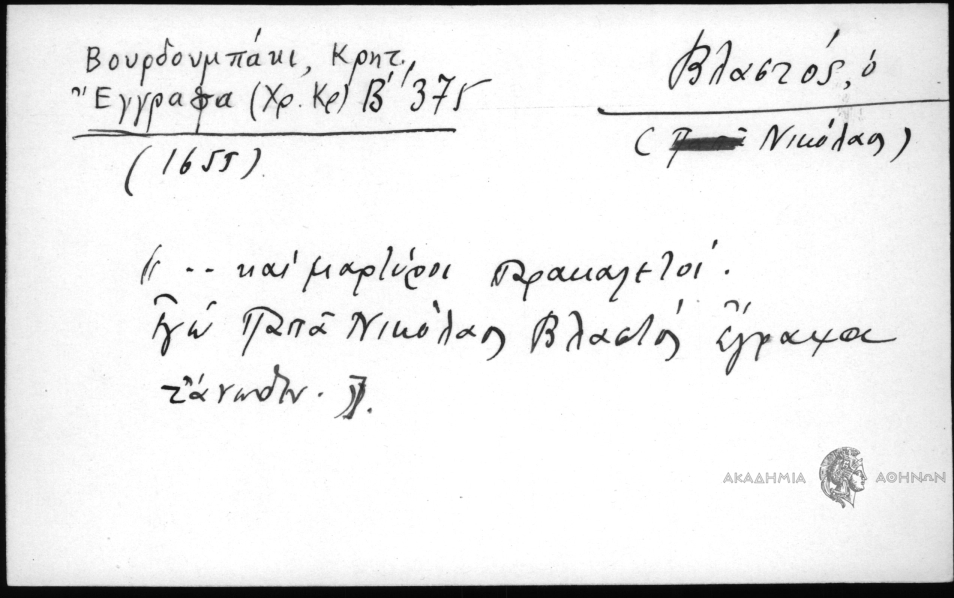 Βουρδουμπάκι, Κρητ.,
Ἔγγραφα (Χρ. Κρ) Β' 375
(1655)
Βλαστός, ὁ
(Παπᾶ Νικόλαος)
« .. καί μαρτύροι παρακαλετοί.
Ἐγώ Παπᾶ Νικόλαος Βλαστός ἔγραψα
τ' ἄνωθεν. ».
ΑΚΑΔΗΜΙΑ ΑΘΗΝΩΝ